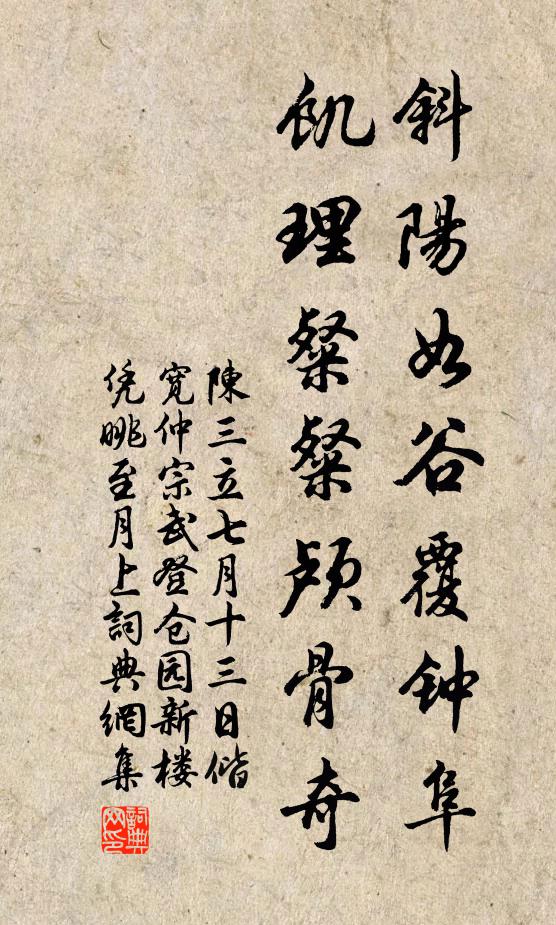 斜陽如谷覆钟阜
飢理粲粲颅骨奇
陳三立七月十三日偕
寬仲宗武登仓园新楼
凭眺至月上詞典網集
詞典网印